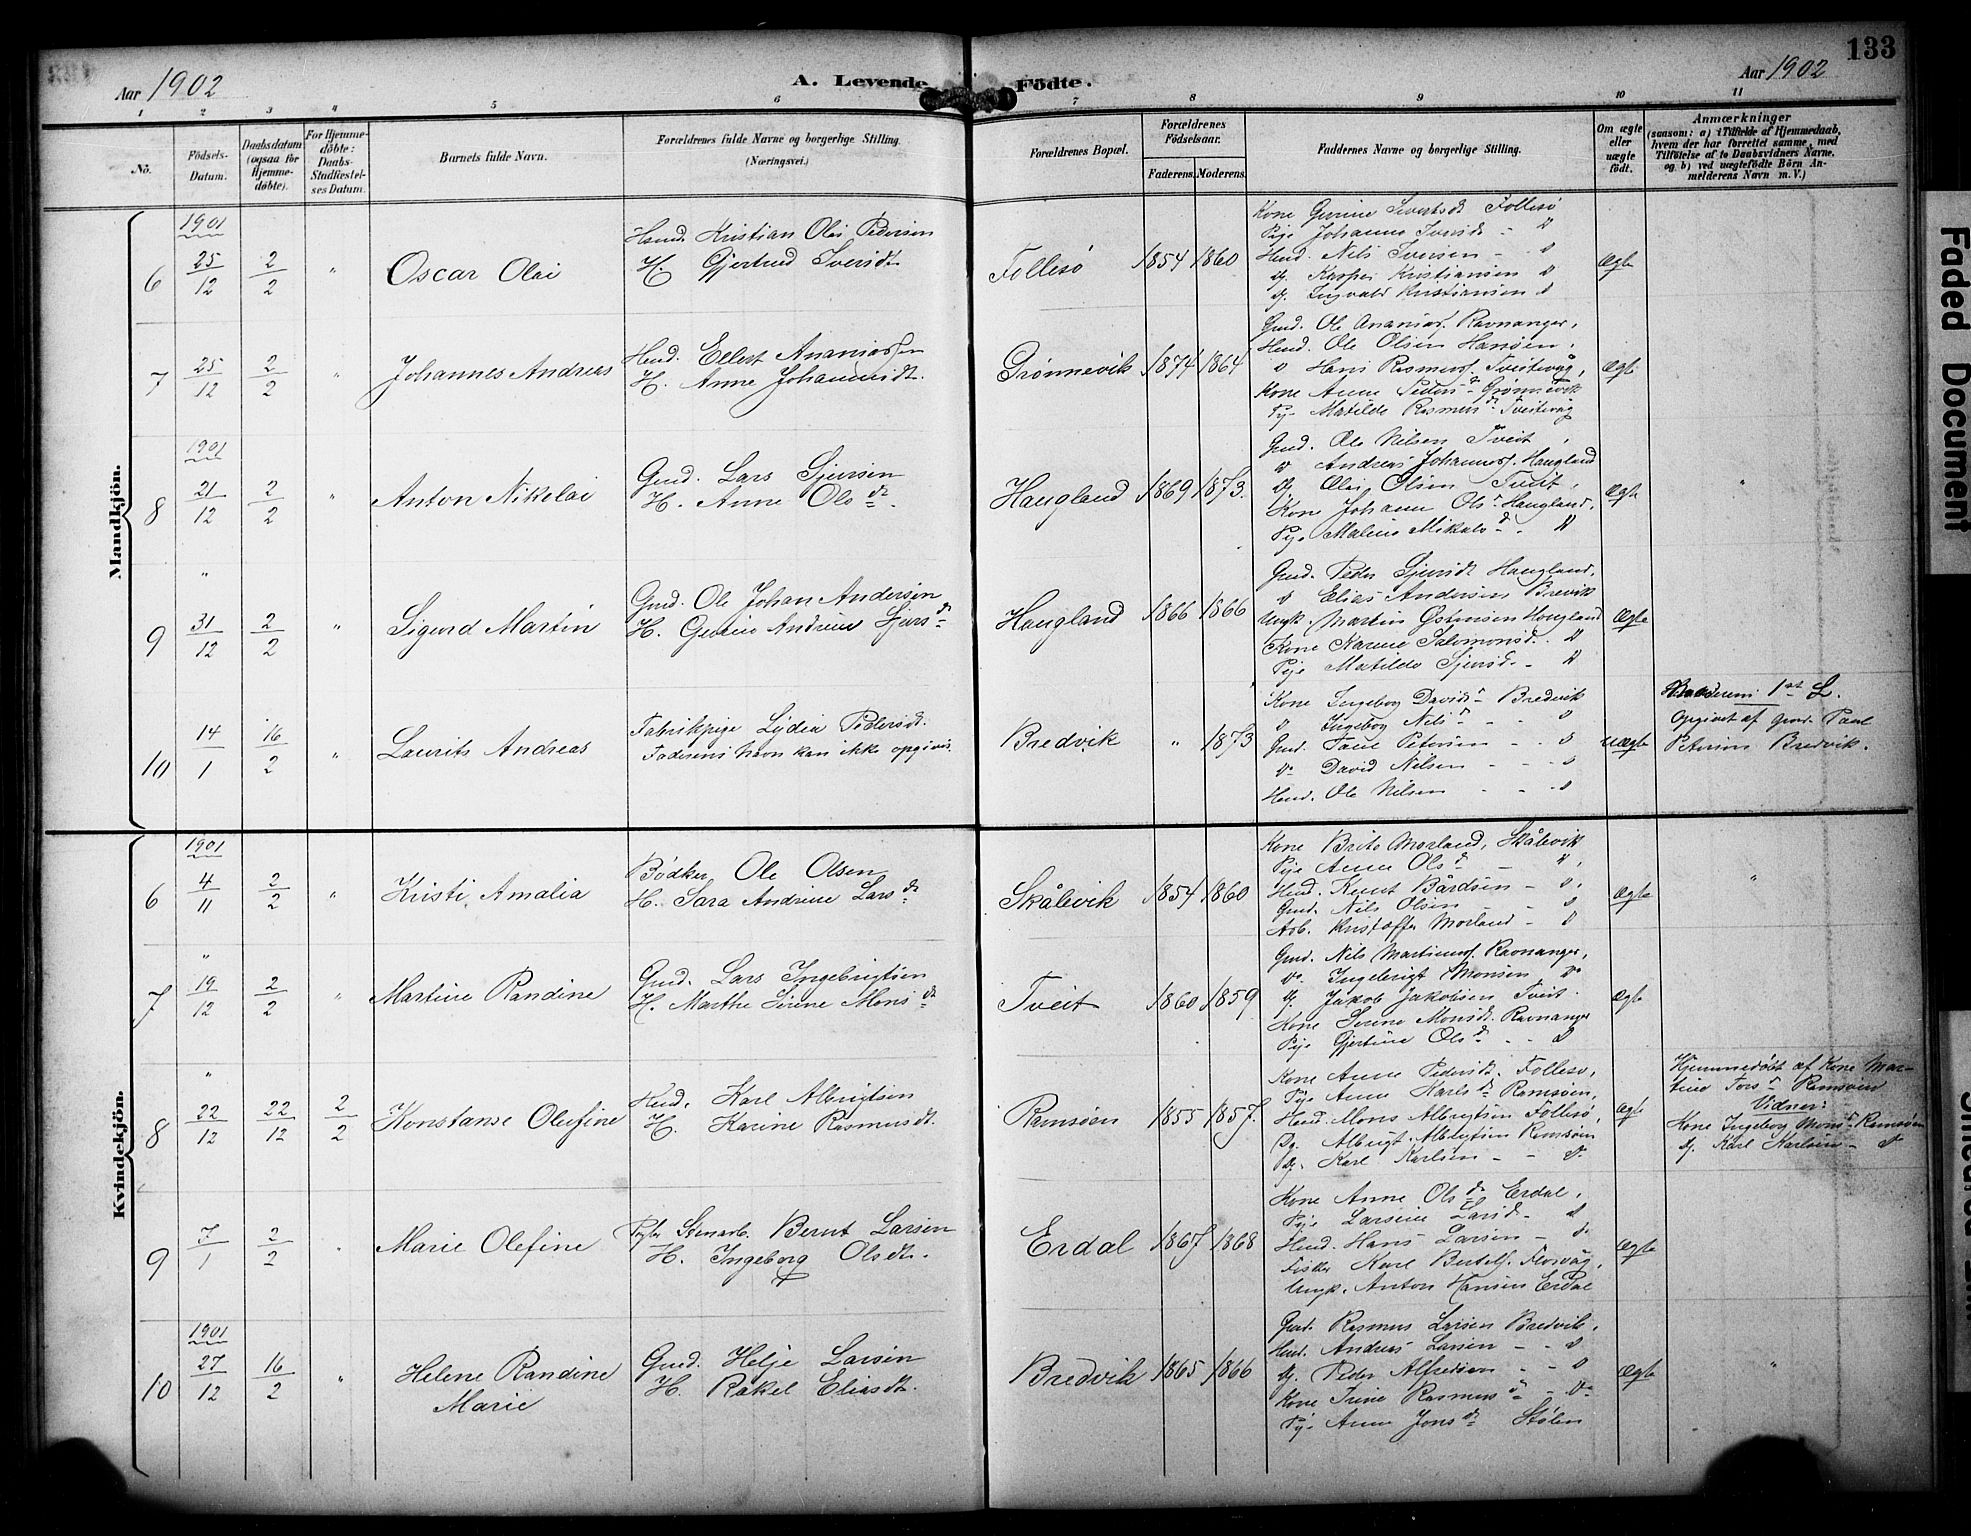 133
Aar 1902
A. Levende Födte.
Aar 1902
1 2 3 4 5 6 7 8 9 10 11
No.
Födsels-Datum.
Daabsdatum (ogsaa for Hjemme-döbte).
For Hjemme-döbte: Daabs-Stadfæstel-ses Datum.
Barnets fulde Navn.
Forældrenes fulde Navne og borgerlige Stilling. (Næringsvei.)
Forældrenes Bopæl.
Forældrenes Födselsaar.
Faderens. Moderens.
Faddernes Navne og borgerlige Stilling.
Om ægte eller uægte födt.
Anmærkninger
(saasom: a) i Tilfælde af Hjemmedaab, hvem der har forrettet samme, med Tilföielse af to Daabsvidners Navne, og b) ved uægtefödte Börn An-melderens Navn m. V.)
Mandkjön.
1901
6 25/12 2/2 " Oscar Olai
Husmd. Kristian Olai Pedersen
H. Gjertrud Iversdt.
Follesö 1854 1860
Kone Gurine Sivertsdt Follesö
Pige Johanna Iversdt - D
Husmd. Nils Iversen - D
Ug. Kasper Kristiansen D
Ug. Ingvald Kristiansen D
Ægte
7 25/12 2/2 " Johannes Andreas
Husmd. Ellert Ananiassen
H. Anne Johannesdt.
Grönnevik 1874 1864
Gmd. Ole Ananiasf. Ravnanger,
Husmd. Ole Olsen Hansen,
D Hans Rasmusf. Tveitevåg,
Kone Anne Peders d. Grönnevik
Pg. Matilde Rasmus d. Tveitevåg
Ægte
1901
8 21/12 2/2 " Anton Nikolai
Gmd. Lars Sjursen
H. Anne Ols dt.
Haugland 1869 1873.
Gmd. Ole Nilsen Tveit,
D Andreas Johannesf. Haugland
Ug. Olai Olsen Tveit,
Kone Johanne Ols d. Haugland,
Pige Malene Mikals d. D
Ægte "
"
9 31/12 2/2 " Sigurd Martin
Gmd. Ole Johan Andersen
H. Gurine Andrea Sjurs dt.
Haugland 1866 1866
Gmd. Peder Sjursdt Haugland,
D Elias Andersen Brevik
Ungk. Martin Östensen Haugland
Kone Karine Salomonsd. D
Pige Matilde Sjursdt - D
Ægte
10 14/1 16/2 " Laurits Andreas
Fabrikpige Lydia Pedersdt.
Faderens Navn kan ikke opgives.
Bredvik " 1873
Kone Ingeborg Davids d. Bredvik
D Ingeborg Nils d. - D
Gmd. Paul Petersen - D
Do David Nilsen - D
Husmd. Ole Nilsen - D
Uægte
Moderens 1st L.
Opgivet af gmd. Paul
Petersen Bredvik.
Kvindekjön.
1901
6 4/11 2/2 " Kristi Amalia
Bödker Ole Olsen
H. Sara Andrine Lars dt.
Skålevik 1854 1860
Kone Brita Morland, Skålevik
Pige Anne Ols d. - D,
Husmd. Knut Bårdsen - D,
Gmd. Nils Olsen - D
Arb. Kristoffer Morland - D
Ægte "
"
7 19/12 2/2 " Martine Randine
Gmd. Lars Ingebrigtsen
H. Marthe Serine Mons dt.
Tveit 1860 1859
Gmd. Nils Martinusf. Ravnanger,
Do Ingebrigt Monsen Do
Ug. Jakob Jakobsen Tveit.
Kone Serine Monsdt. Ravnanger
Pige Gjertine Ols d. - D
Ægte
"
8 22/12 22/12 2/2 Konstanse Olufine
Husmd. Karl Albrigtsen
H. Karine Rasmusdt.
Ramsöen 1855 1857.
Kone Anne Pedersdt. Follesö,
Pige Anna Karls d. Ramsöen,
Husmd. Mons Albrigtsen Follesö,
Ug. Albrigt Albrigtsen Ramsöen
Ug. Karl Karlsen - Do
Ægte
Hjemmedöbt af Kone Mar-
tine Tors d. Ramsöen
Vidner:
Kone Ingeborg Mons d. Ramsöen
Ug. Karl Karlsen - D
9 7/1 2/2 " Marie Olefine
Bernt Larsen
H. Ingeborg Olsdt.
Erdal 1867 1868
Kone Anne Ols dt. Erdal,
Pige Larsine Larsd. - D
Husmd. Hans Larsen - Do
Fisker Karl Bertelsf. Florvåg,
Ungk. Anton Hansen Erdal
Ægte
1901
10 27/12 16/2 " Helene Randine
Marie
Gmd. Helje Larsen
H. Rakel Eliasdt.
Bredvik 1865 1866
Gmd. Rasmus Larsen Bredvik,
Husmd. Andreas Larsen - D
Ug. Peder Alfredsen - D
Kone Trine Rasmus d. - Do
Pige Anne Jons dt. Stölen
Ægte "
Faded Document